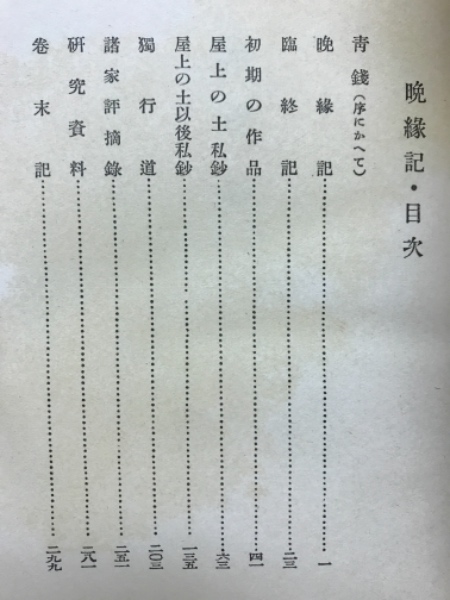 晩緣記・目次
青錢(序にかへて)
晩緣記…一
臨終記…二三
初期の作品…四一
屋上の土私鈔…六三
屋上の土以後私鈔…一三五
獨行道…二〇三
諸家評摘錄…二五一
硏究資料…二八一
卷末記…二九九